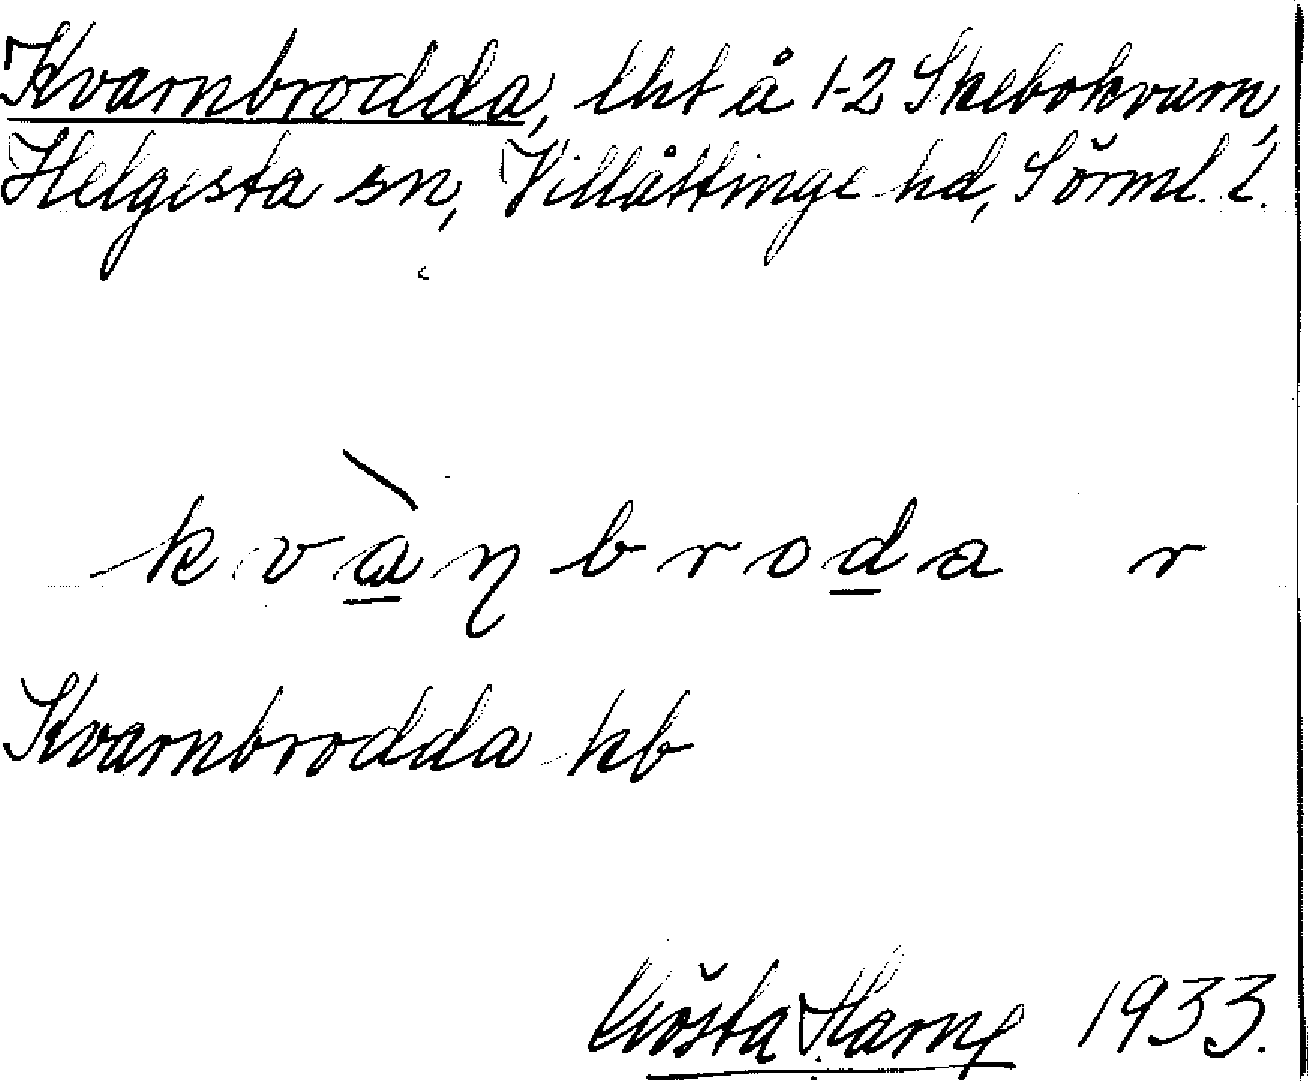 Kvarnbrodda, lht å 1-2 Skebokvarn,
Helgesta sn, Villåttinge hd, Sörml. l.
kvàṇbroda r
Kvarnbrodda kb
Gösta Harne 1933.